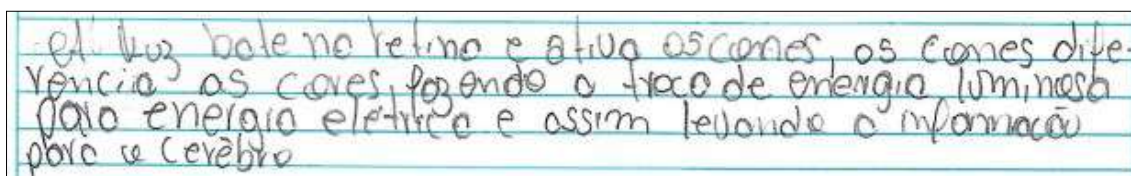 A luz bate no retina e ativa os cones, os cones dife-
rencia as cores, fazendo a troca de energia luminosa
para energia elétrica e assim levando a informação
para o cerébro